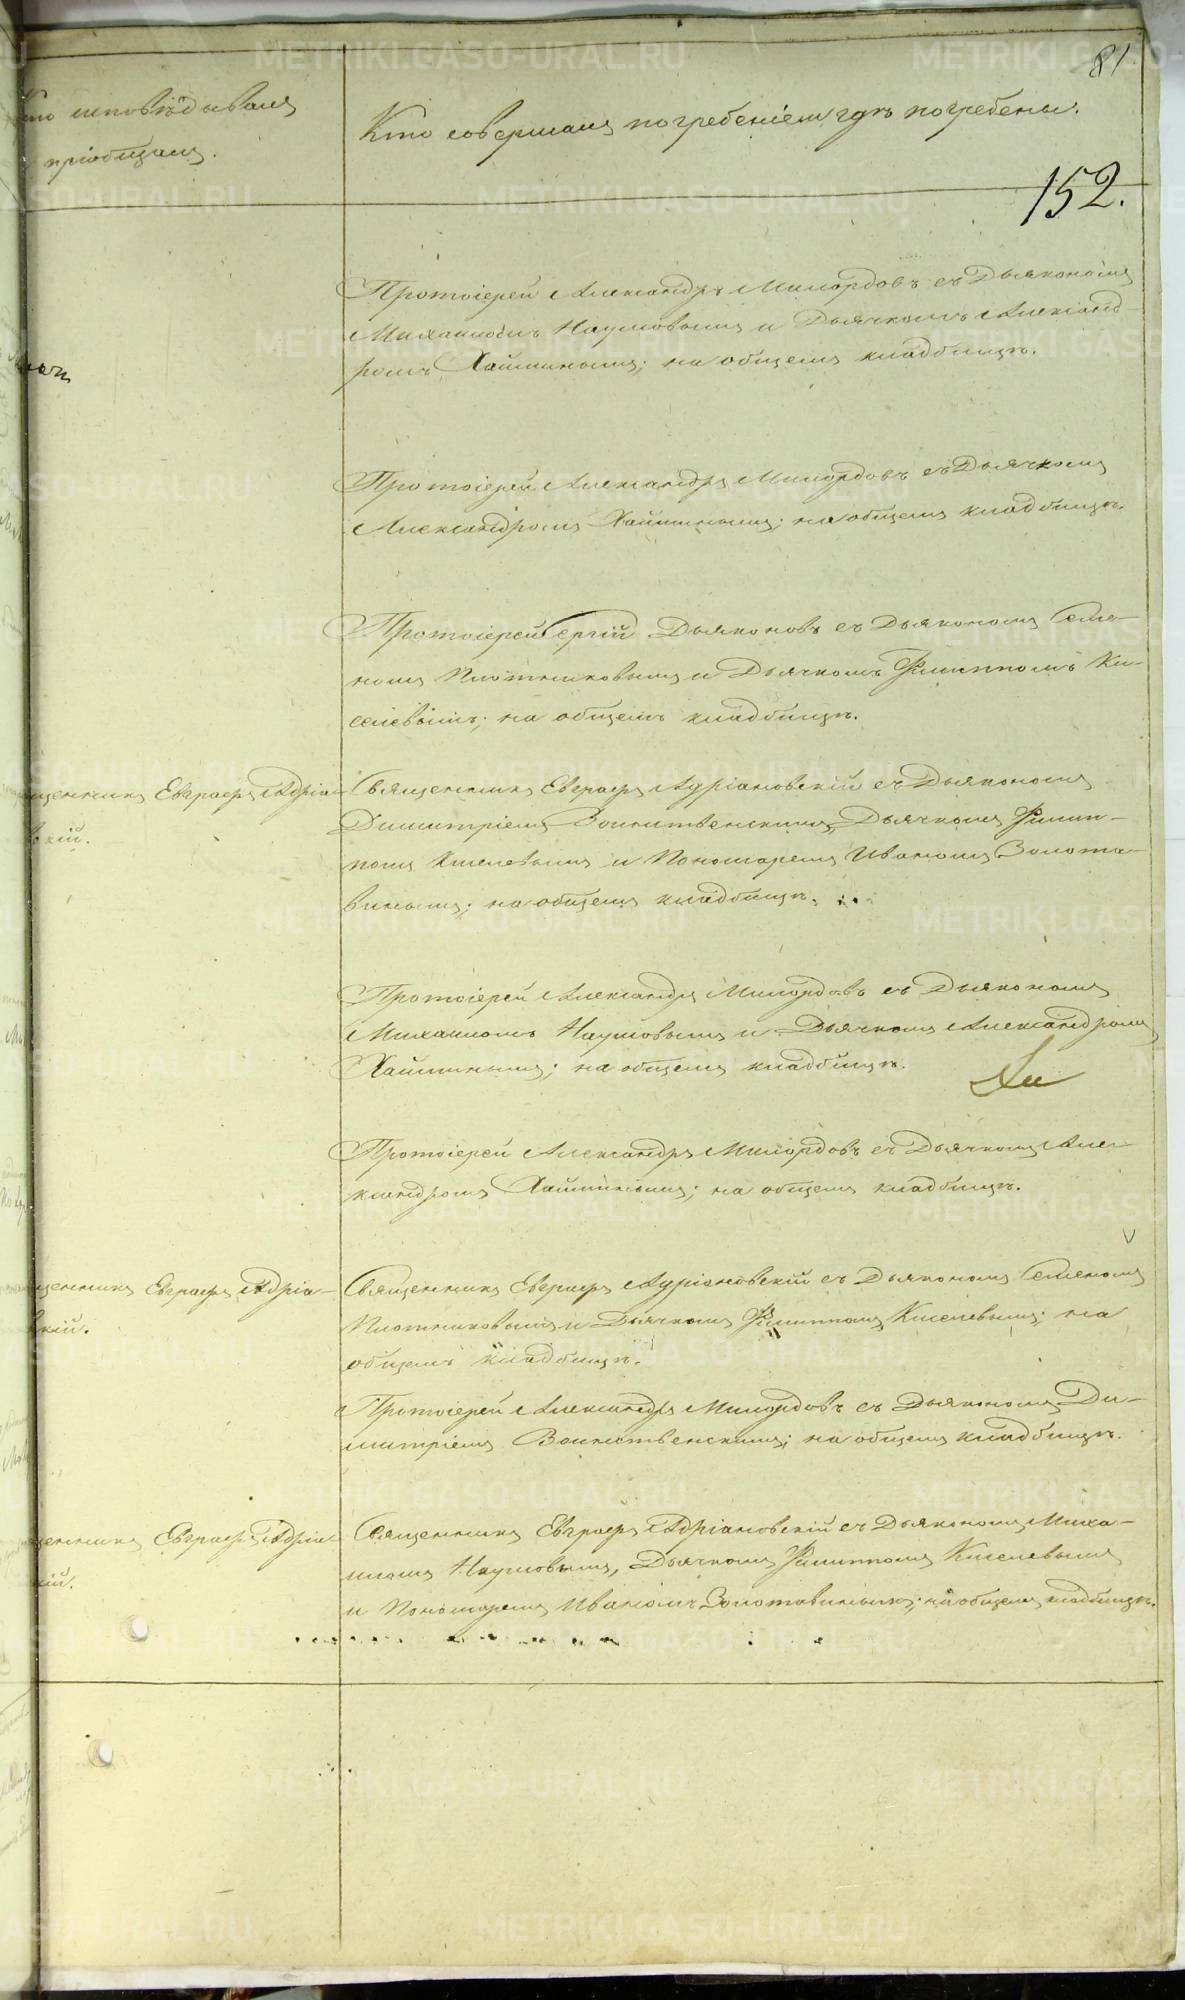 81
Кто исповѣдывалъ
и пріобщалъ.
Кто совершалъ погребеніе и гдѣ погребены.
152.
Протоіерей Александръ Милордовъ съ Дьякономъ
Михаиломъ Наумовымъ и Дьячкомъ Александ-
ромъ Хайминымъ; на общемъ кладбищѣ.
Протоіерей Александръ Милордовъ съ Дьячкомъ
Александромъ Хайминымъ; на общемъ кладбищѣ.
Протоіерей Сергій Дьяконовъ съ Дьякономъ Семе-
номъ Плотниковымъ и Дьячкомъ Филиппомъ Ки-
селевымъ; на общемъ кладбищѣ.
щенникъ Евграфъ Адріа-
вскій.
Священникъ Евграфъ Адріановскій съ Дьякономъ
Димитріемъ Воинственскимъ, Дьячкомъ Филип-
помъ Киселевымъ и Пономаремъ Иваномъ Золота-
винымъ; на общемъ кладбищѣ.
Протоіерей Александръ Милордовъ съ Дьякономъ
Михаиломъ Наумовымъ и Дьячкомъ Александромъ
Хайминымъ; на общемъ кладбищѣ.
Протоіерей Александръ Милордовъ съ Дьячкомъ Але-
ксандромъ Хайминымъ; на общемъ кладбищѣ.
щенникъ Евграфъ Адріа-
вскій.
Священникъ Евграфъ Адріановскій съ Дьякономъ Семеномъ
Плотниковымъ и Дьячкомъ Филиппомъ Киселевымъ; на
общемъ кладбищѣ.
Протоіерей Александръ Милордовъ съ Дьякономъ Ди-
митріемъ Воинственскимъ; на общемъ кладбищѣ.
щенникъ Евграфъ Адріа-
скій.
Священникъ Евграфъ Адріановскій съ Дьякономъ Миха-
иломъ Наумовымъ, Дьячкомъ Филиппомъ Киселевымъ
и Пономаремъ Иваномъ Золотавинымъ; на общемъ кладбищѣ.
METRIKI.GASO-URAL.RU